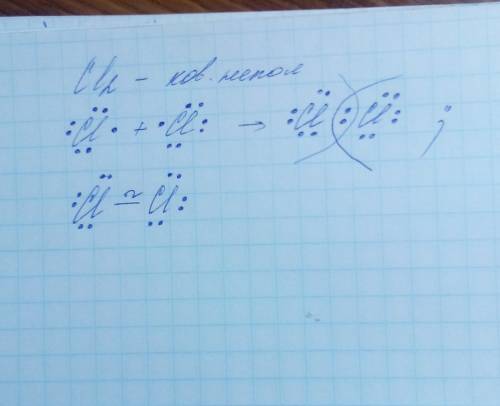 Cl₂ – ков. непол
:C̈l· + ·C̈l: → :C̈l:C̈l: ;
:C̈l – C̈l: